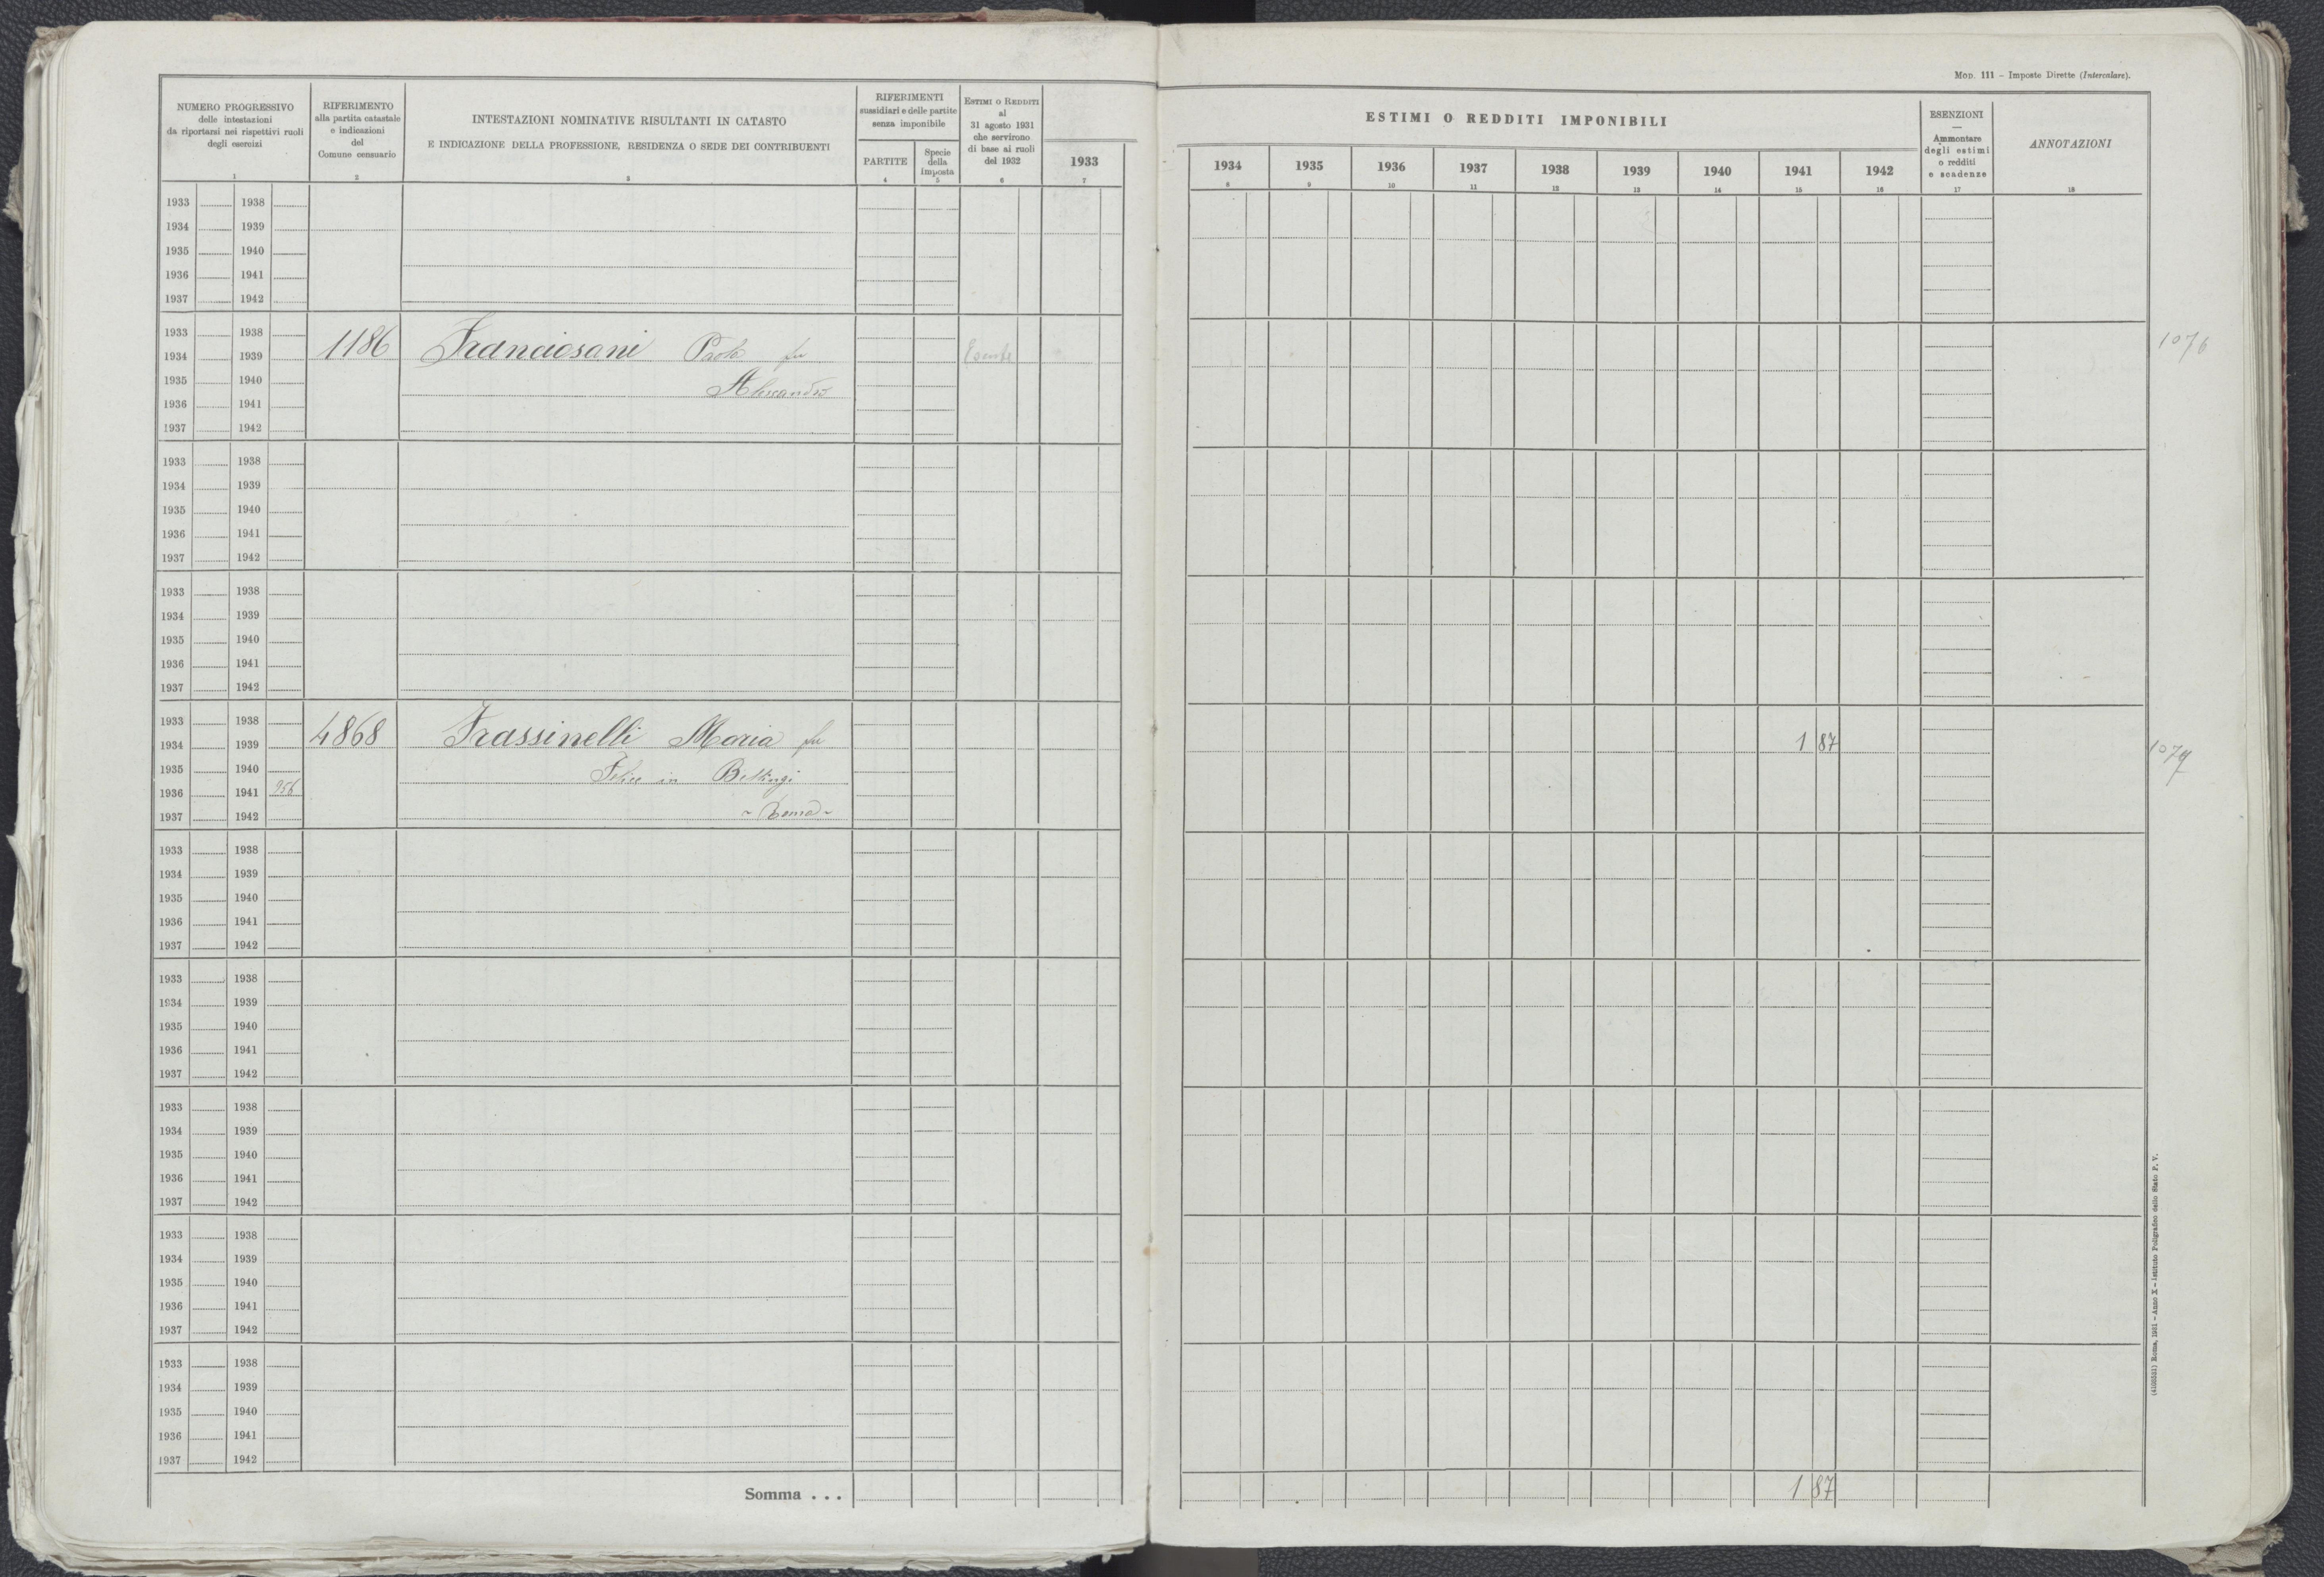 MOD. 111 – Imposte Dirette (Intercalare).
NUMERO PROGRESSIVO
delle intestazioni
da riportarsi nei rispettivi ruoli
degli esercizi
1
RIFERIMENTO
alla partita catastale
e indicazioni
del
Comune censuario
2
INTESTAZIONI NOMINATIVE RISULTANTI IN CATASTO
E INDICAZIONE DELLA PROFESSIONE, RESIDENZA O SEDE DEI CONTRIBUENTI
3
RIFERIMENTI
sussidiari e delle partite
senza imponibile
PARTITE
4
Specie
della
imposta
5
ESTIMI O REDDITI
al
31 agosto 1931
che servirono
di base ai ruoli
del 1932
6
1933
7
ESTIMI O REDDITI IMPONIBILI
1934 1935 1936 1937 1938 1939 1940 1941 1942
8 9 10 11 12 13 14 15 16
ESENZIONI
—
Ammontare
degli estimi
o redditi
e scadenze
17
ANNOTAZIONI
18
1933 1938
1934 1939
1935 1940
1936 1941
1937 1942
1933 1938
1934 1939 1186 Franciosani Paolo fu Esente 1076
1935 1940 Alessandro
1936 1941
1937 1942
1933 1938
1934 1939
1935 1940
1936 1941
1937 1942
1933 1938
1934 1939
1935 1940
1936 1941
1937 1942
1933 1938
1934 1939 4868 Frassinelli Maria fu 1 87
1935 1940 Felice in
1936 1941 956
1937 1942 ~ Roma ~
1933 1938
1934 1939
1935 1940
1936 1941
1937 1942
1933 1938
1934 1939
1935 1940
1936 1941
1937 1942
1933 1938
1934 1939
1935 1940
1936 1941
1937 1942
1933 1938
1934 1939
1935 1940
1936 1941
1937 1942
1933 1938
1934 1939
1935 1940
1936 1941
1937 1942
Somma . . . 1 87
(4103531) Roma, 1931 – Anno X – Istituto Poligrafico dello Stato P. V.